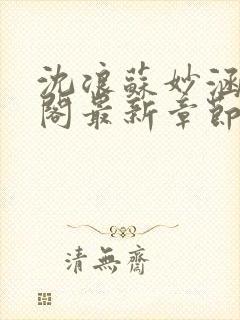 沈浪蘇妙涵
閣最新章節
清無齋